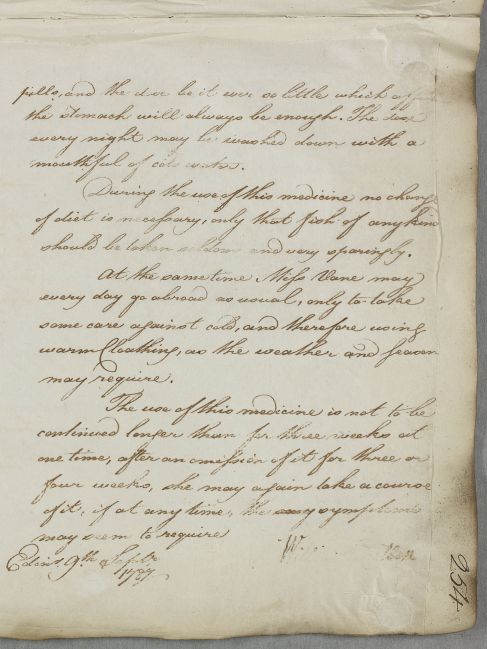 pills, and the dose be it ever so little which
the stomach will always be enough. The dose
every night may be washed down with a
mouthful of cold water.
During the use of this medicine no change
of diet is necessary, only that fish of any kind
should be taken seldom and very sparingly.
At the same time Miss Vane may
every day go abroad as usual, only to take
some care against cold, and therefore using
warm Cloathing, as the weather and season
may require.
The use of this medicine is not to be
continued longer than for three weeks at
one time, after an omission of it for three or
four weeks, she may again take a course
of it, if at any time, the symptoms
may seem to require
Edinr. 9th Septr.
1787
254